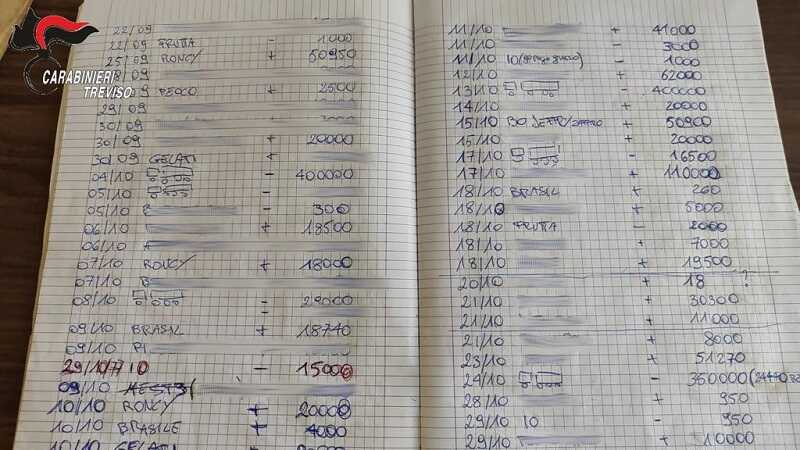 CARABINIERI
TREVISO
22/09
22/09 FRUTTA - 1000
25/09 RONCY + 50950
28/09
09 + 2500
29/09
30/09
30/09 + 20000
30/09 GELATI +
04/10 - 400000
05/10 -
05/10 - 300
06/10 + 18500
06/10
07/10 RONCY + 18000
07/10
08/10 - 29000
09/10 BRASIL + 18740
09/10
29/10/ 10 - 15000
09/10
10/10 RONCY + 20000
10/10 BRASILE + 4000
10/10 GELATI
11/10 + 41000
11/10 - 3000
11/10 10 - 1000
12/10 + 62000
13/10 - 400000
14/10 + 20000
15/10 + 50900
15/10 + 20000
17/10 - 16500
17/10 + 110000
18/10 BRASIL + 260
18/10 + 5000
18/10 FRUTTA - 2000
18/10 + 7000
18/10 + 19500
20/10 + 18 ?
21/10 + 30300
21/10 + 11000
21/10 + 8000
23/10 + 51270
24/10 - 350000
28/10 + 950
29/10 10 - 950
29/10 + 10000